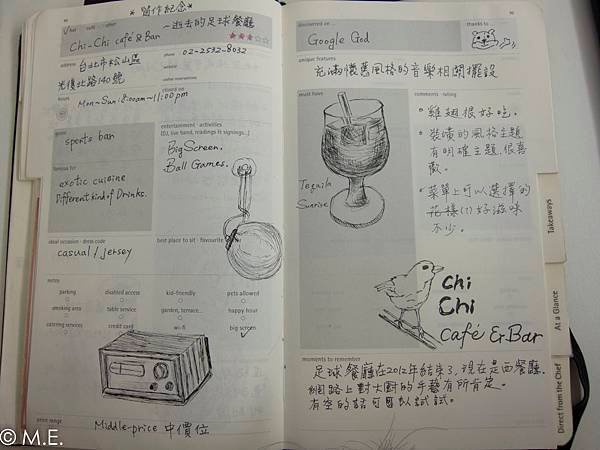 * 留作紀念 *
~逝去的足球餐廳
bar · café · other
Chi-Chi café & Bar
★★★☆☆
address
台北市松山區
光復北路140號
phone
02-2532-8032
website
online reservations
hours
Mon~Sun 8:00am~11:00pm
closed on
genre
sports bar
famous for
exotic cuisine
Different kind of Drinks.
entertainment · activities
(DJ, live band, readings & signings...)
Big Screen.
Ball Games.
ideal occasion · dress code
casual / jersey
best place to sit · favourite
notes
parking
disabled access
kid-friendly
pets allowed
smoking area
table service
garden, terrace...
happy hour
catering services
credit card
wi-fi
big screen
price range
Middle-price 中價位
© M.E.
discovered on ...
Google God
thanks to ...
unique features
充滿懷舊風格的音樂相關擺設
must have
Tequila
Sunrise
comments · rating
雞翅很好吃。
裝潢的風格主題
有明確主題、很喜
歡。
菜單上可以選擇的
花樣(?)好滋味
不少。
Chi
Chi
Café & Bar
moments to remember
足球餐廳在2012年結束了,現在是西餐廳、
網路上對大廚的手藝有所肯定。
有空的話可以試試。
Takeaways
At a Glance
Direct from the Chef